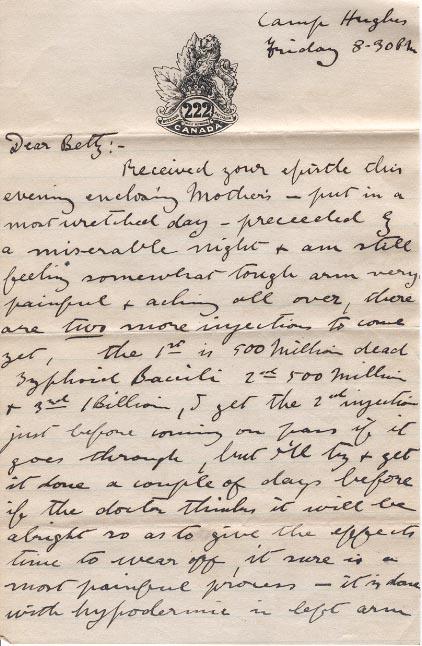 Camp Hughes
Friday 8-30 PM
222
CANADA
Dear Betty:-
Received your epistle this
evening enclosing Mother's - put in a
most wretched day - preceeded by
a miserable night & am still
feeling somewhat tough arm very
painful & aching all over, there
are two more injections to come
yet, the 1st is 500 Million dead
Typhoid Bacilli 2nd 500 Million
& 3rd 1 Billion, I get the 2nd injection
just before coming on pass if it
goes through, but I'll try & get
it done a couple of days before
if the doctor thinks it will be
alright so as to give the effects
time to wear off, it sure is a
most painful process - it is done
with hypodermic in left arm